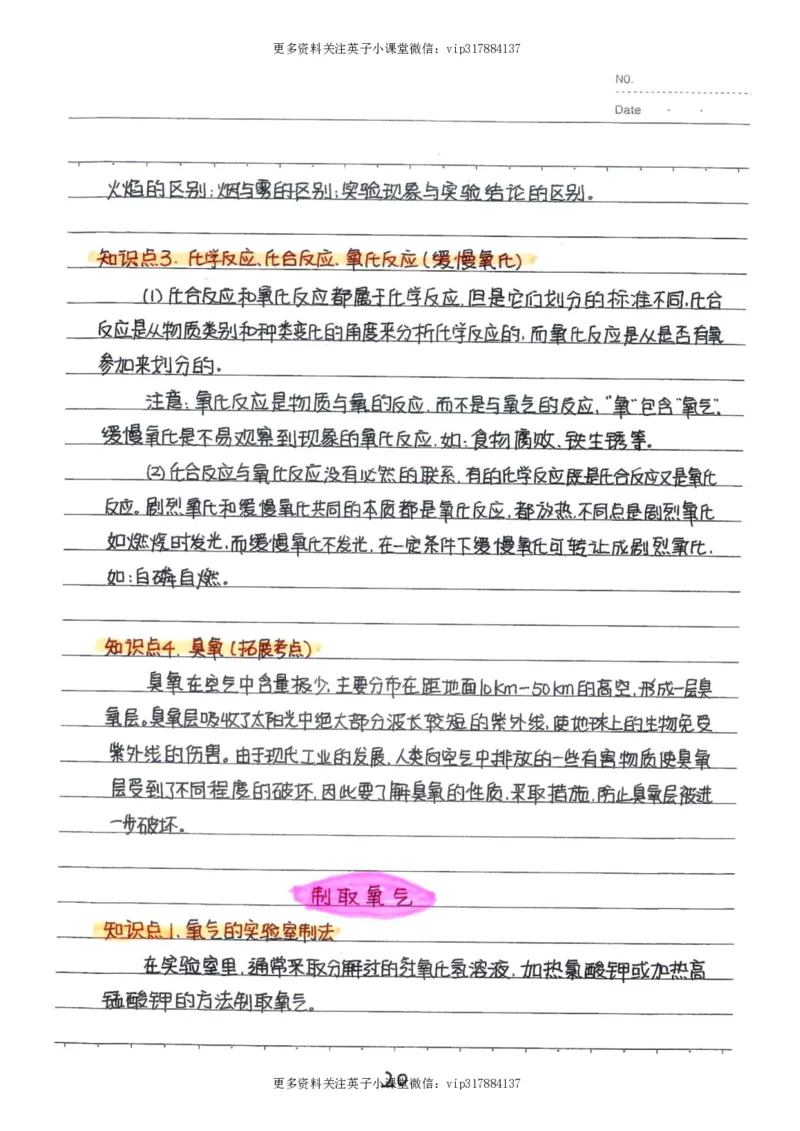 更多资料关注英子小课堂微信：vip317884137
NO.
Date
火焰的区别；烟与雾的区别；实验现象与实验结论的区别。
知识点3. 化学反应、化合反应、氧化反应(缓慢氧化)
(1)化合反应和氧化反应都属于化学反应,但是它们划分的标准不同,化合
反应是从物质类别和种类变化的角度来分析化学反应的,而氧化反应是从是否有氧
参加来划分的。
注意：氧化反应是物质与氧的反应,而不是与氧气的反应,“氧”包含“氧气”。
缓慢氧化是不易观察到现象的氧化反应,如：食物腐败、铁生锈等。
(2)化合反应与氧化反应没有必然的联系,有的化学反应既是化合反应又是氧化
反应。剧烈氧化和缓慢氧化共同的本质都是氧化反应,都放热,不同点是剧烈氧化
如燃烧时发光,而缓慢氧化不发光,在一定条件下缓慢氧化可转让成剧烈氧化,
如：白磷自燃。
知识点4. 臭氧(拓展考点)
臭氧在空气中含量极少,主要分布在距地面10km-50km的高空,形成一层臭
氧层。臭氧层吸收了太阳光中绝大部分波长较短的紫外线,使地球上的生物免受
紫外线的伤害。由于现代工业的发展,人类向空气中排放的一些有害物质使臭氧
层受到了不同程度的破坏,因此要了解臭氧的性质,采取措施,防止臭氧层被进
一步破坏。
制取氧气
知识点1. 氧气的实验室制法
在实验室里,通常采取分解过的过氧化氢溶液,加热氯酸钾或加热高
锰酸钾的方法制取氧气。
20
更多资料关注英子小课堂微信：vip317884137